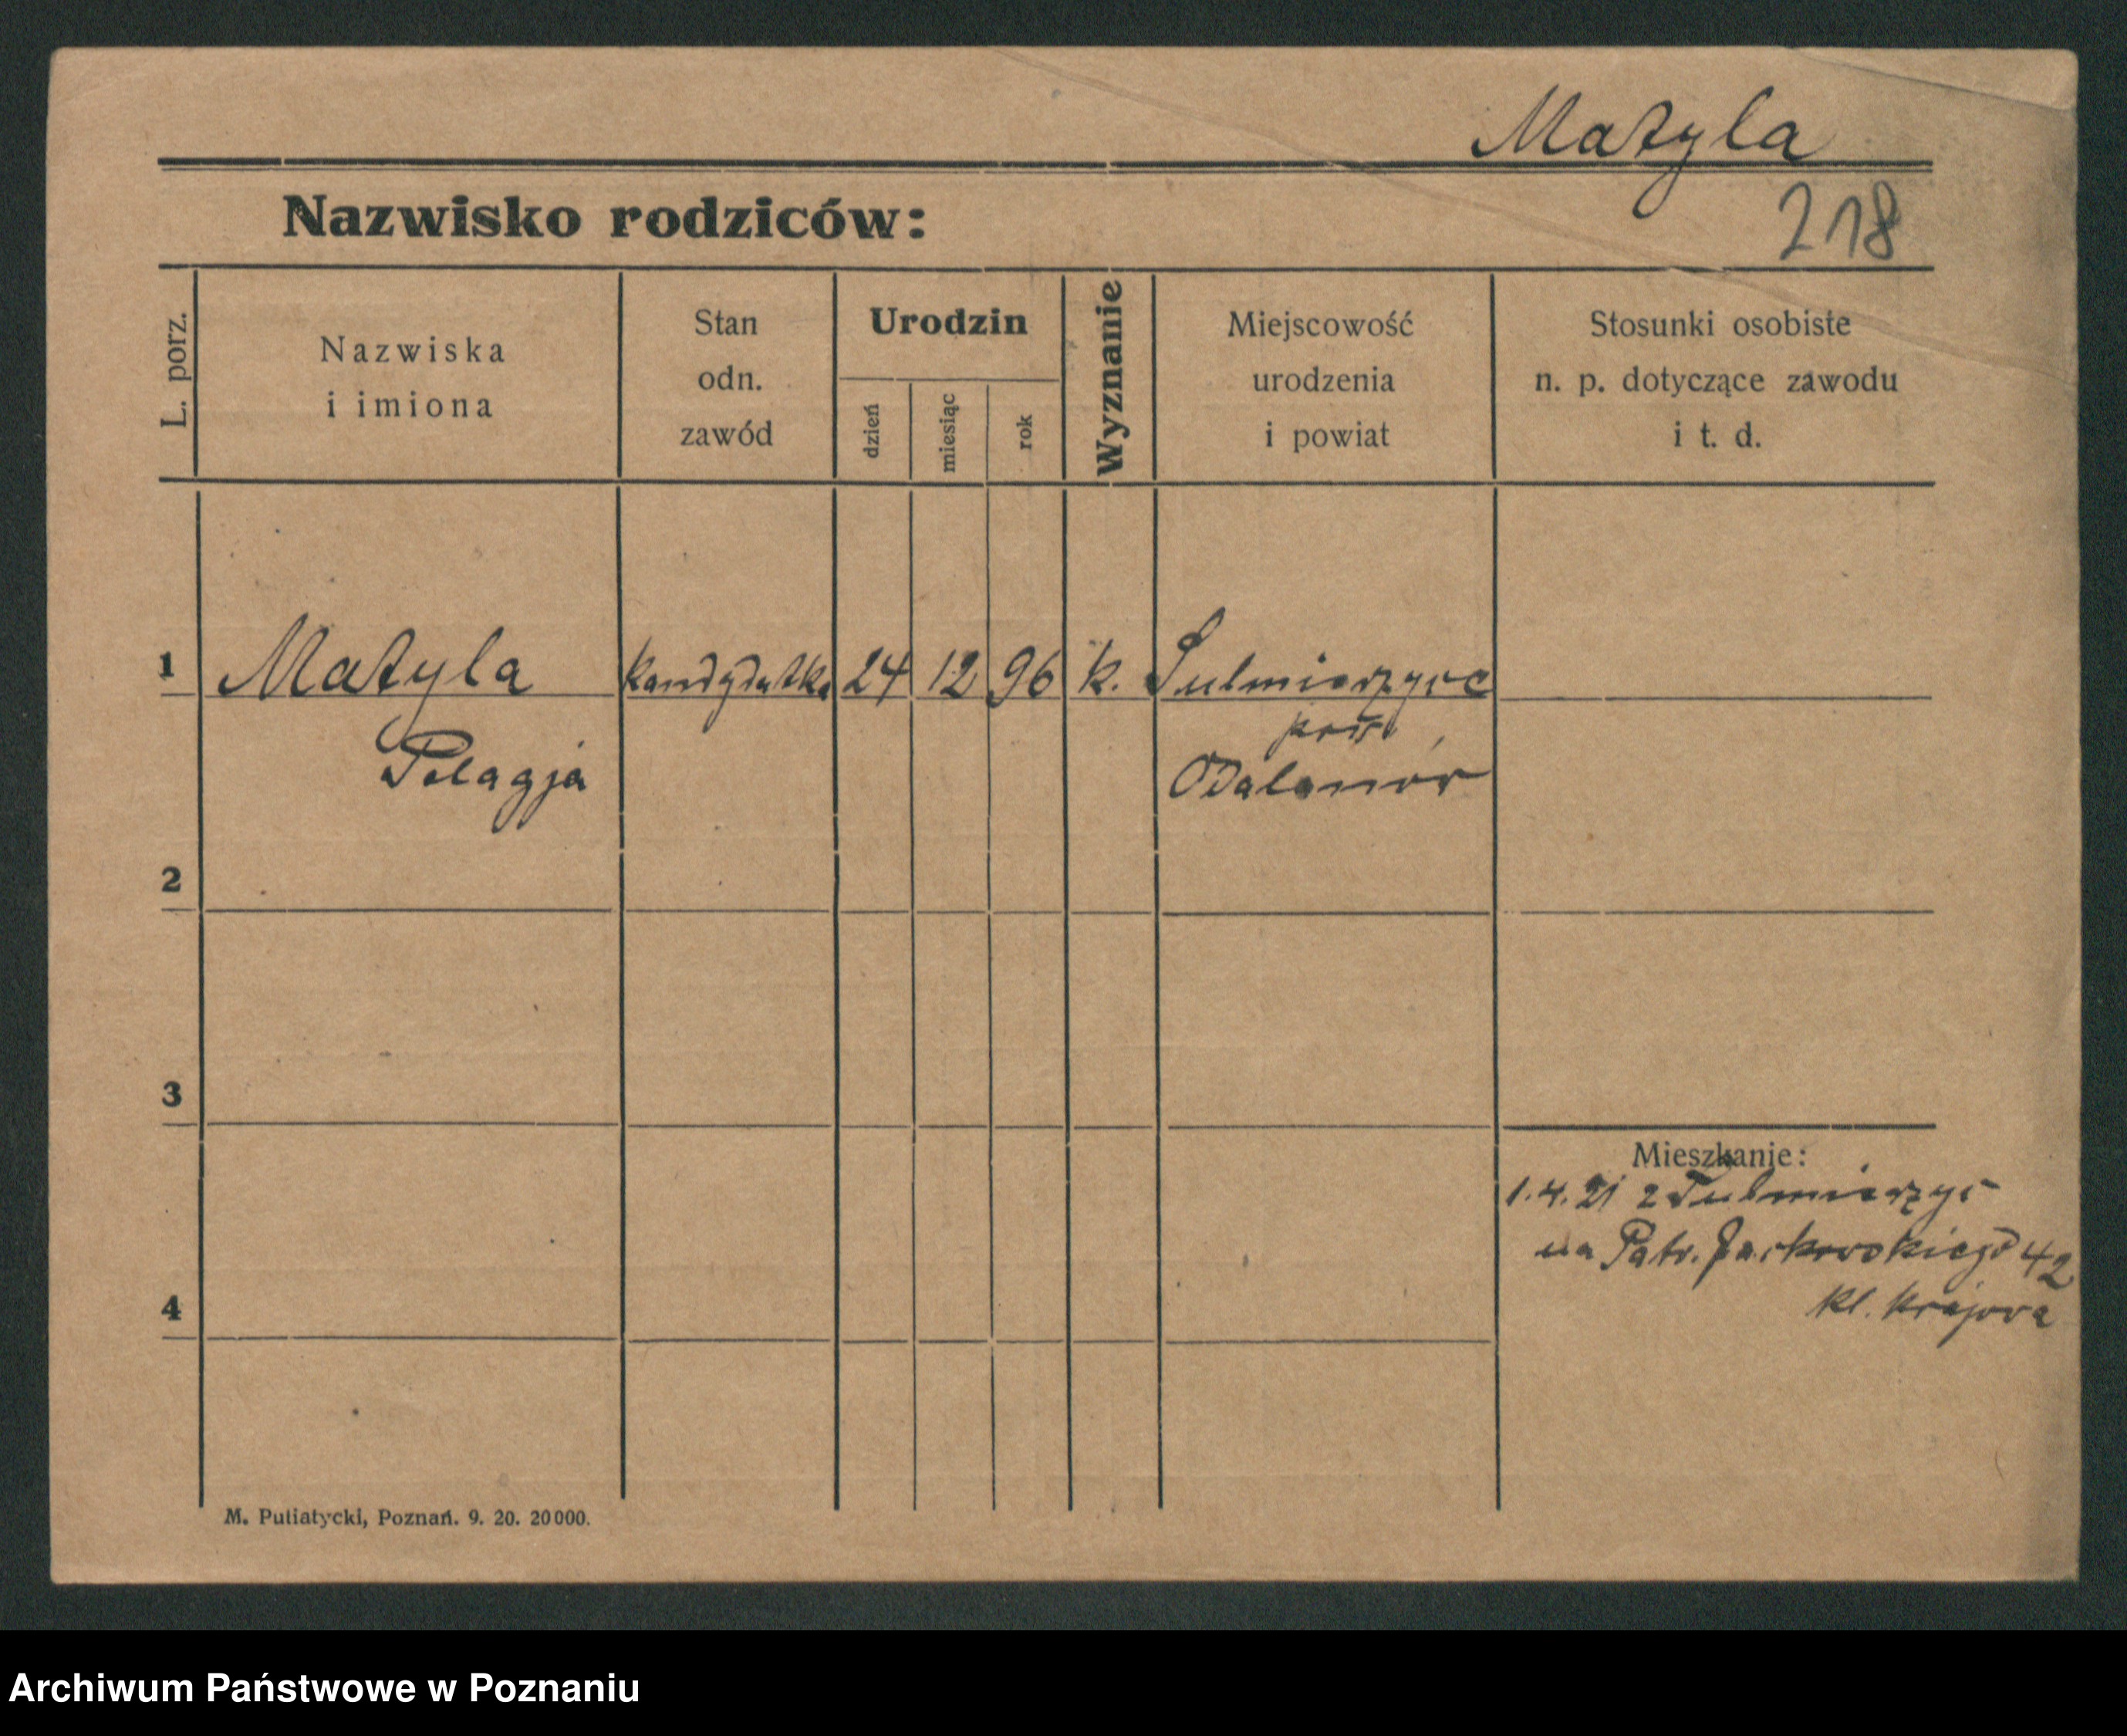 Matyla
218
Nazwisko rodziców:
L. porz.
Nazwiska
i imiona
Stan
odn.
zawód
Urodzin
dzień
miesiąc
rok
Wyznanie
Miejscowość
urodzenia
i powiat
Stosunki osobiste
n. p. dotyczące zawodu
i t. d.
1 Matyla kandydatka 24 12 96 k. Sulmierzyce
Pelagja
Odalanów
2
3
4
Mieszkanie:
1.4.21 z Sulmierzyc
na Patr. Jackowskiego 42
kl. Krajova
M. Putiatycki, Poznań. 9. 20. 20000.
Archiwum Państwowe w Poznaniu